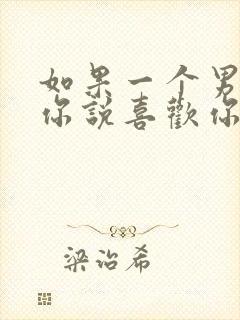 如果一个男
你說喜歡你
梁治希